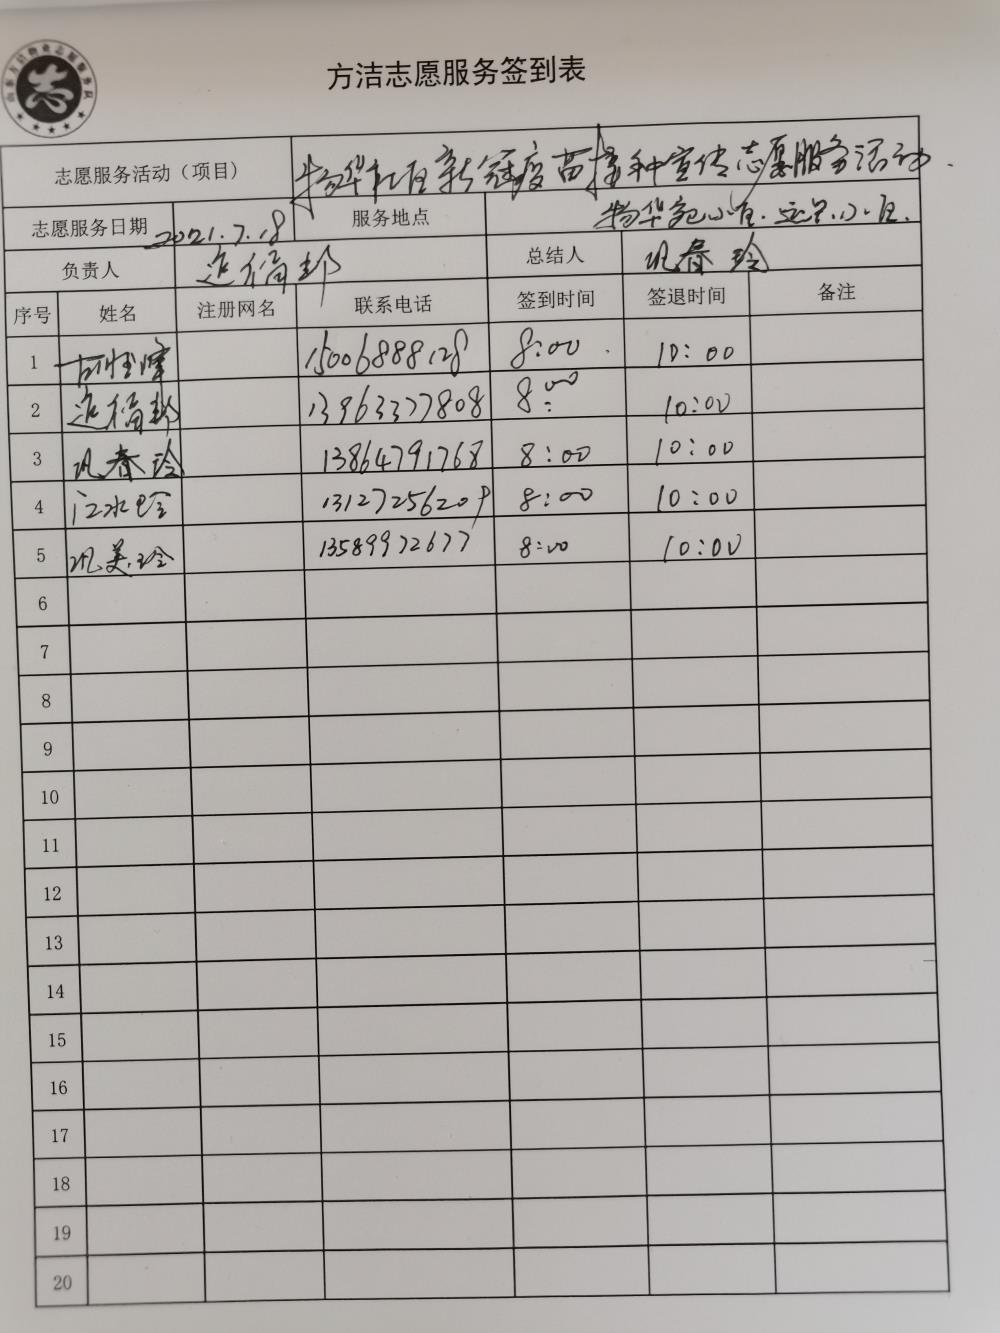 山东方洁物业志愿服务队
志
方洁志愿服务签到表
志愿服务活动（项目） 物华社区新冠疫苗接种宣传志愿服务活动.
志愿服务日期 2021.7.18 服务地点 物华 小区. 小区.
负责人 总结人 巩春玲
序号 姓名 注册网名 联系电话 签到时间 签退时间 备注
1 15006888128 8:00 10:00
2 13963377808 8:00 10:00
3 巩春玲 13864791768 8:00 10:00
4 8:00 10:00
5 巩美玲 13589972677 8:00 10:00
6
7
8
9
10
11
12
13
14
15
16
17
18
19
20